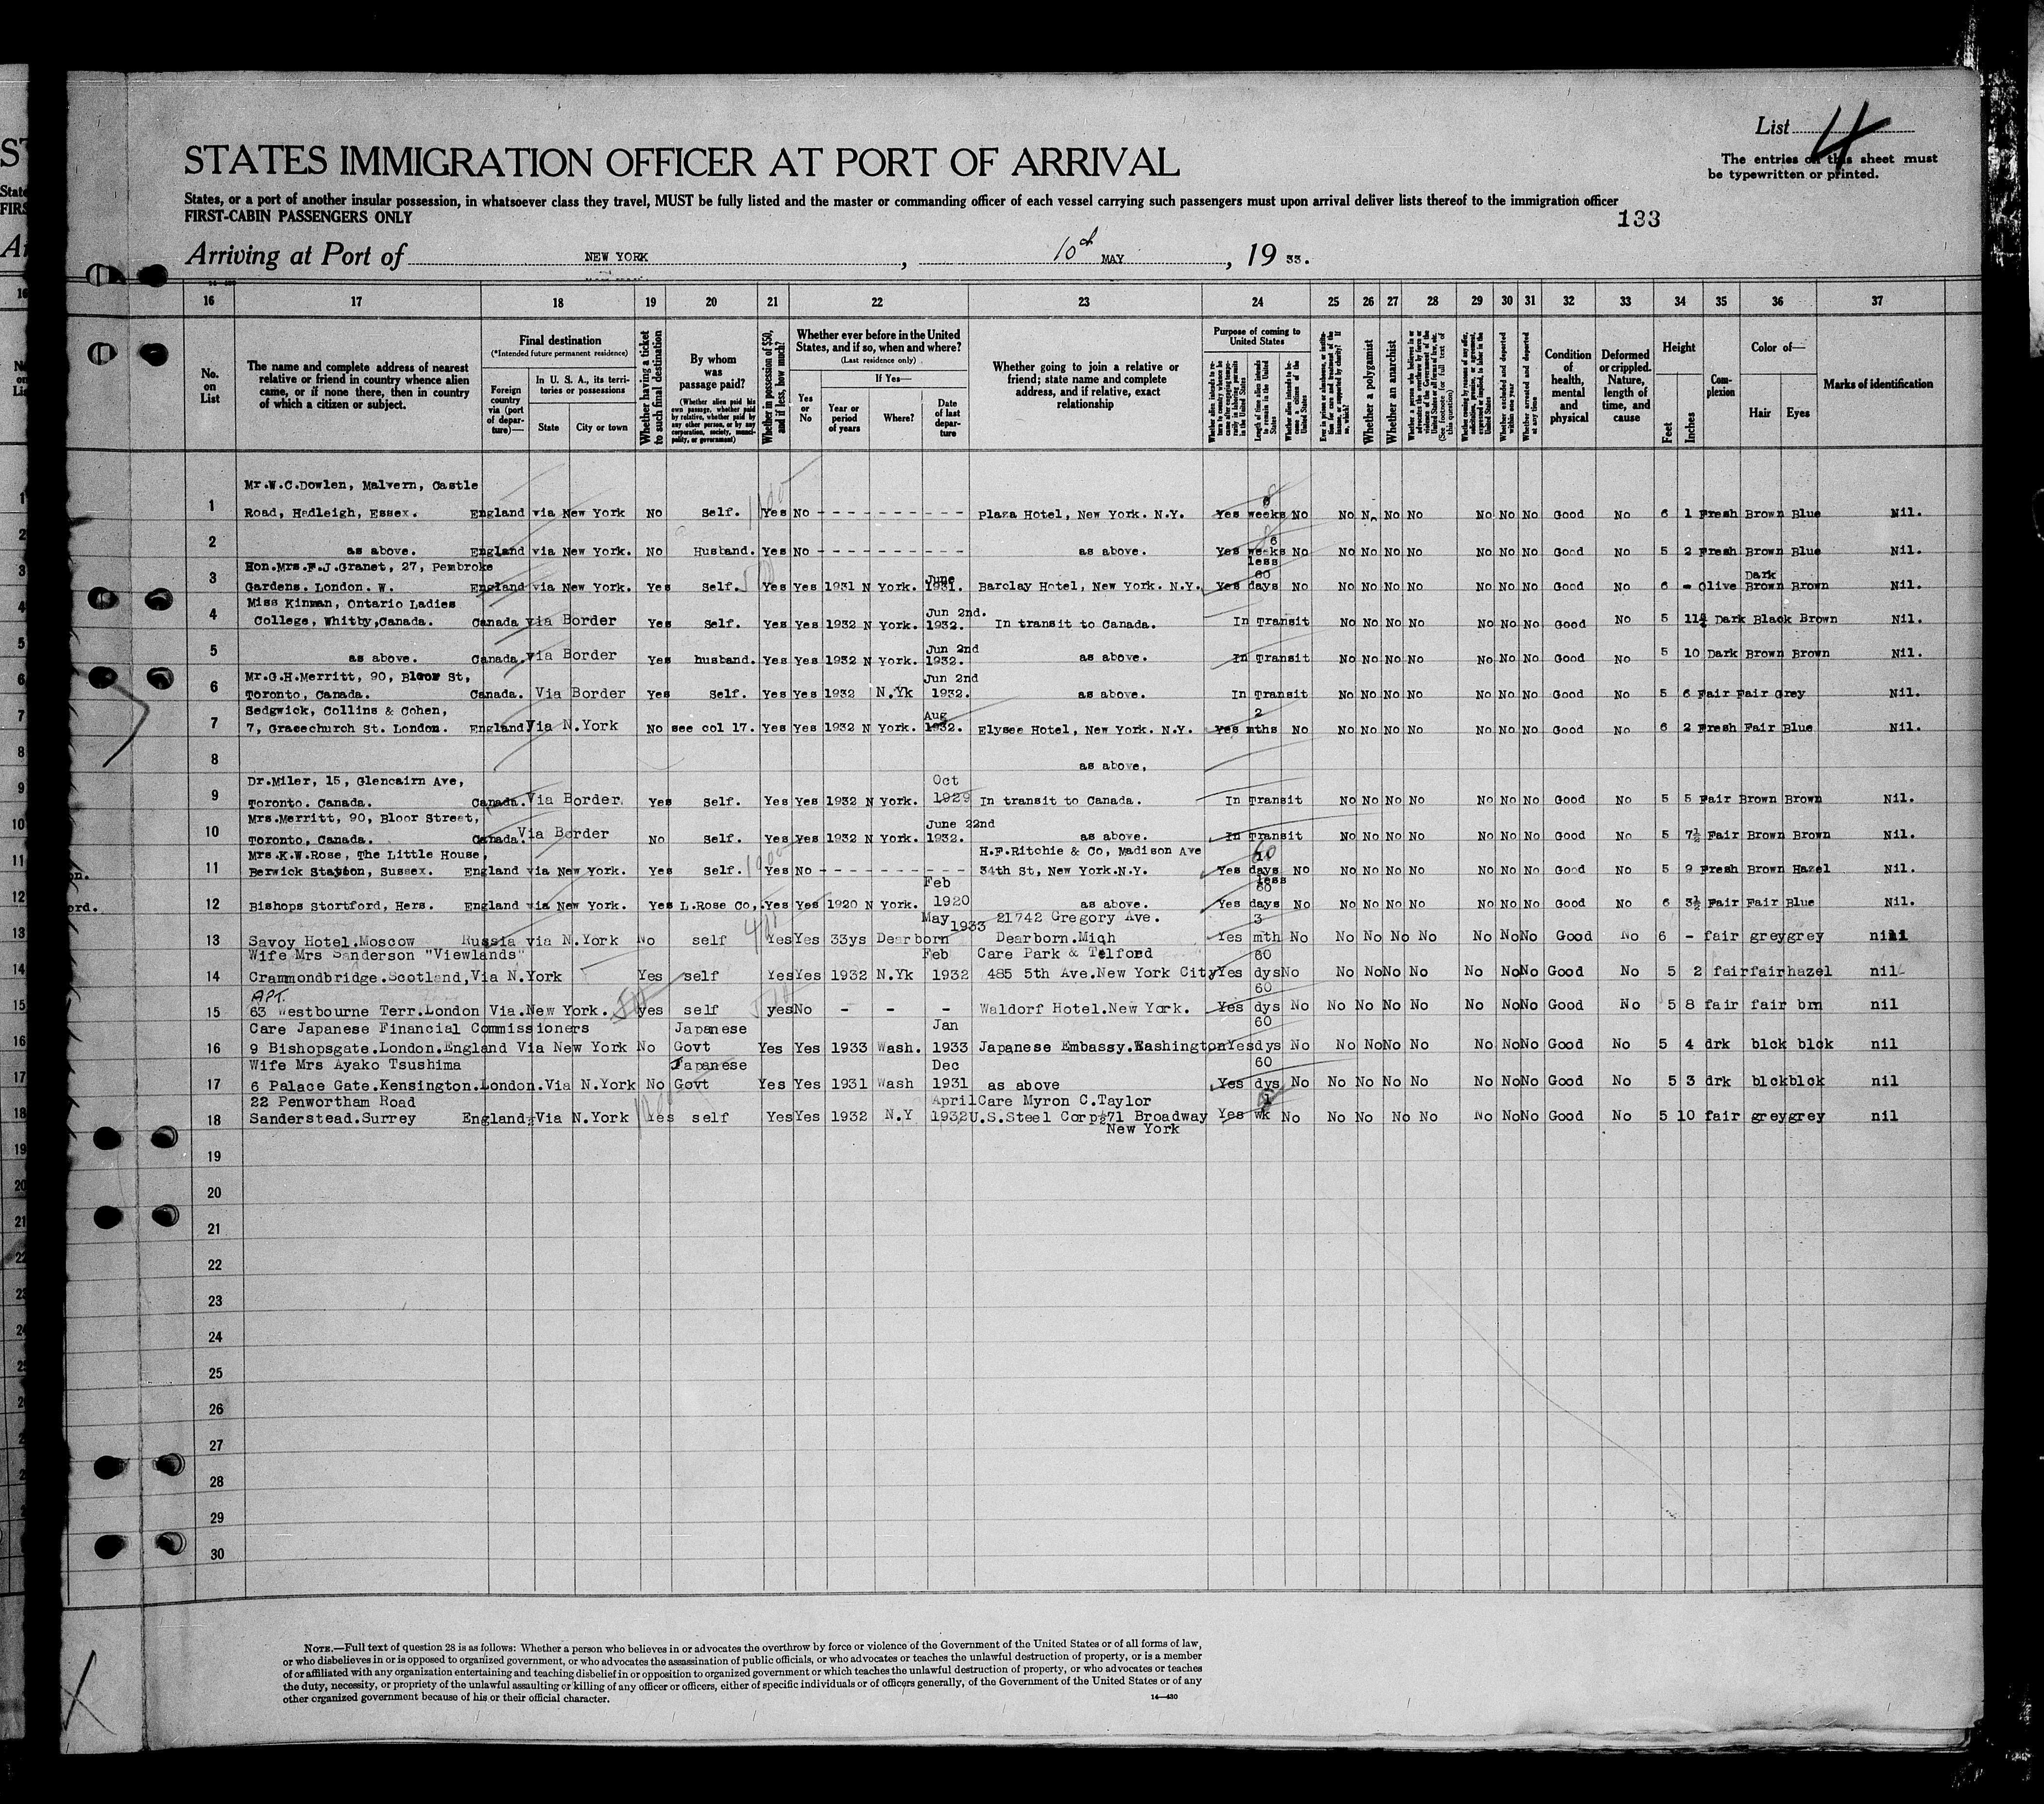 List 4
The entries on this sheet must
be typewritten or printed.
STATES IMMIGRATION OFFICER AT PORT OF ARRIVAL
States, or a port of another insular possession, in whatsoever class they travel, MUST be fully listed and the master or commanding officer of each vessel carrying such passengers must upon arrival deliver lists thereof to the immigration officer
FIRST-CABIN PASSENGERS ONLY
133
Arriving at Port of NEW YORK, 10th MAY, 19 33.
16 17 18 19 20 21 22 23 24 25 26 27 28 29 30 31 32 33 34 35 36 37
No. on List
The name and complete address of nearest relative or friend in country whence alien came, or if none there, then in country of which a citizen or subject.
Final destination
(*Intended future permanent residence)
Foreign country via (port of departure)—
In U. S. A., its territories or possessions
State
City or town
Whether having a ticket to such final destination
By whom was passage paid?
(Whether alien paid his own passage, whether paid by relative, whether paid by any other person, or by any corporation, society, municipality, or government)
Whether in possession of $50, and if less, how much?
Whether ever before in the United States, and if so, when and where?
(Last residence only)
Yes or No
If Yes—
Year or period of years
Where?
Date of last departure
Whether going to join a relative or friend; state name and complete address, and if relative, exact relationship
Purpose of coming to United States
Length of time alien intends to remain in the United States
Whether alien intends to become a citizen of the United States
Whether a polygamist
Whether an anarchist
Condition of health, mental and physical
Deformed or crippled. Nature, length of time, and cause
Height
Feet
Inches
Complexion
Color of—
Hair
Eyes
Marks of identification
Mr.W.C.Dowlen, Malvern, Castle
1 Road, Hadleigh, Essex. England via New York No Self. Yes No - - - - - - - - - Plaza Hotel, New York. N.Y. Yes weeks No No No No No No No Good No 6 1 Fresh Brown Blue Nil.
6
2 as above. England via New York. No Husband. Yes No - - - - - - - - - as above. Yes weeks No No No No No No No No Good No 5 2 Fresh Brown Blue Nil.
Hon.Mrs.F.J.Granet, 27, Pembroke June less 60 Dark
3 Gardens. London. W. England via New York. Yes Self. Yes Yes 1931 N York. 1931. Barclay Hotel, New York. N.Y. Yes days No No No No No No No No Good No 6 - Olive Brown Brown Nil.
Miss Kinman, Ontario Ladies Jun 2nd.
4 College, Whitby, Canada. Canada via Border Yes Self. Yes Yes 1932 N York. 1932. In transit to Canada. In Transit No No No No No No No Good No 5 11½ Dark Black Brown Nil.
Jun 2nd
5 as above. Canada. via Border Yes husband. Yes Yes 1932 N York. 1932. as above. In Transit No No No No No No No Good No 5 10 Dark Brown Brown Nil.
Mr.G.H.Merritt, 90, Bloor St, Jun 2nd
6 Toronto, Canada. Canada. Via Border Yes Self. Yes Yes 1932 N.Yk 1932. as above. In Transit No No No No No No No Good No 5 6 Fair Fair Grey Nil.
Sedgwick, Collins & Cohen, Aug 2
7 7, Gracechurch St. London. England Via N.York No see col 17. Yes Yes 1932 N York. 1932. Elysee Hotel, New York. N.Y. Yes mths No No No No No No No No Good No 6 2 Fresh Fair Blue Nil.
8 as above,
Dr.Miler, 15, Glencairn Ave, Oct
9 Toronto. Canada. Canada. Via Border. Yes Self. Yes Yes 1932 N York. 1929 In transit to Canada. In Transit No No No No No No No Good No 5 5 Fair Brown Brown Nil.
Mrs.Merritt, 90, Bloor Street, June 22nd
10 Toronto, Canada. Canada. Via Border No Self. Yes Yes 1932 N York. 1932. as above. In Transit No No No No No No No Good No 5 7½ Fair Brown Brown Nil.
Mrs.K.W.Rose, The Little House, H.F.Ritchie & Co, Madison Ave 60
11 Berwick Station, Sussex. England via New York. Yes Self. 1000 Yes No - - - - - - - - - 34th St, New York.N.Y. Yes days No No No No No No No No Good No 5 9 Fresh Brown Hazel Nil.
Feb less 60
12 Bishops Stortford, Hers. England via New York. Yes L.Rose Co, Yes Yes 1920 N York. 1920 as above. Yes days No No No No No No No No Good No 6 3½ Fair Fair Blue Nil.
May 1933 21742 Gregory Ave. 3
13 Savoy Hotel.Moscow Russia via N.York No self Yes Yes 33ys Dearborn Dearborn.Migh Yes mth No No No No No No No No Good No 6 - fair grey grey nil
Wife Mrs Sanderson "Viewlands" Feb Care Park & Telford 60
14 Crammondbridge.Scotland, Via N.York Yes self Yes Yes 1932 N.Yk 1932 485 5th Ave.New York City Yes dys No No No No No No No No Good No 5 2 fair fair hazel nil
APT. 60
15 63 Westbourne Terr.London Via.New York. Yes self yes No - - - Waldorf Hotel.New York. Yes dys No No No No No No No No Good No 5 8 fair fair brn nil
Care Japanese Financial Commissioners Japanese Jan 60
16 9 Bishopsgate.London.England Via New York No Govt Yes Yes 1933 Wash. 1933 Japanese Embassy.Washington Yes dys No No No No No No No No Good No 5 4 drk blck blck nil
Wife Mrs Ayako Tsushima Japanese Dec 60
17 6 Palace Gate.Kensington.London.Via N.York No Govt Yes Yes 1931 Wash 1931 as above Yes dys No No No No No No No No Good No 5 3 drk blck blck nil
22 Penwortham Road April Care Myron C.Taylor 1
18 Sanderstead.Surrey England Via N.York Yes self Yes Yes 1932 N.Y 1932 U.S.Steel Corp 71 Broadway Yes wk No No No No No No No No Good No 5 10 fair grey grey nil
New York
19
20
21
22
23
24
25
26
27
28
29
30
NOTE.—Full text of question 28 is as follows: Whether a person who believes in or advocates the overthrow by force or violence of the Government of the United States or of all forms of law,
or who disbelieves in or is opposed to organized government, or who advocates the assassination of public officials, or who advocates or teaches the unlawful destruction of property, or is a member
of or affiliated with any organization entertaining and teaching disbelief in or opposition to organized government or which teaches the unlawful destruction of property, or who advocates or teaches
the duty, necessity, or propriety of the unlawful assaulting or killing of any officer or officers, either of specific individuals or of officers generally, of the Government of the United States or of any
other organized government because of his or their official character.
14—430